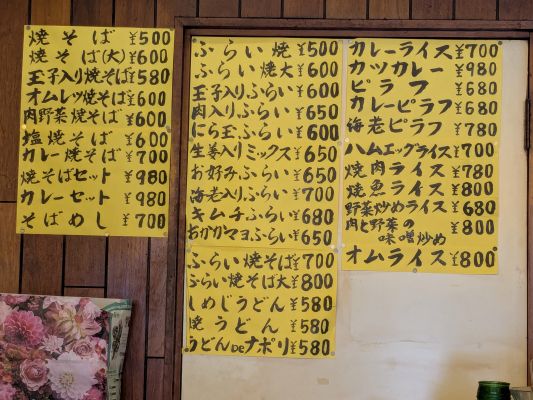 焼そば ¥500
焼そば(大) ¥600
玉子入り焼そば ¥580
オムレツ焼そば ¥600
肉野菜焼そば ¥600
塩焼そば ¥600
カレー焼そば ¥700
焼そばセット ¥980
カレーセット ¥980
そばめし ¥700
ふらい焼 ¥500
ふらい焼大 ¥600
玉子入りふらい ¥600
肉入りふらい ¥650
にら玉ふらい ¥600
生姜入りミックス ¥650
お好みふらい ¥650
海老入りふらい ¥700
キムチふらい ¥680
おかかマヨふらい ¥650
ふらい焼そば ¥700
ふらい焼そば大 ¥800
しめじうどん ¥580
焼うどん ¥580
うどんDeナポリ ¥580
カレーライス ¥700
カツカレー ¥980
ピラフ ¥680
カレーピラフ ¥680
海老ピラフ ¥780
ハムエッグライス ¥700
焼肉ライス ¥780
焼魚ライス ¥800
野菜炒めライス ¥680
肉と野菜の
味噌炒め ¥800
オムライス ¥800